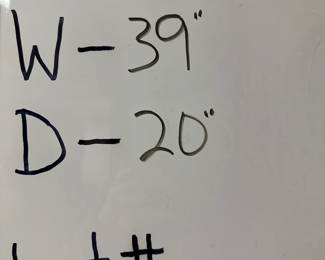 W - 39"
D - 20"